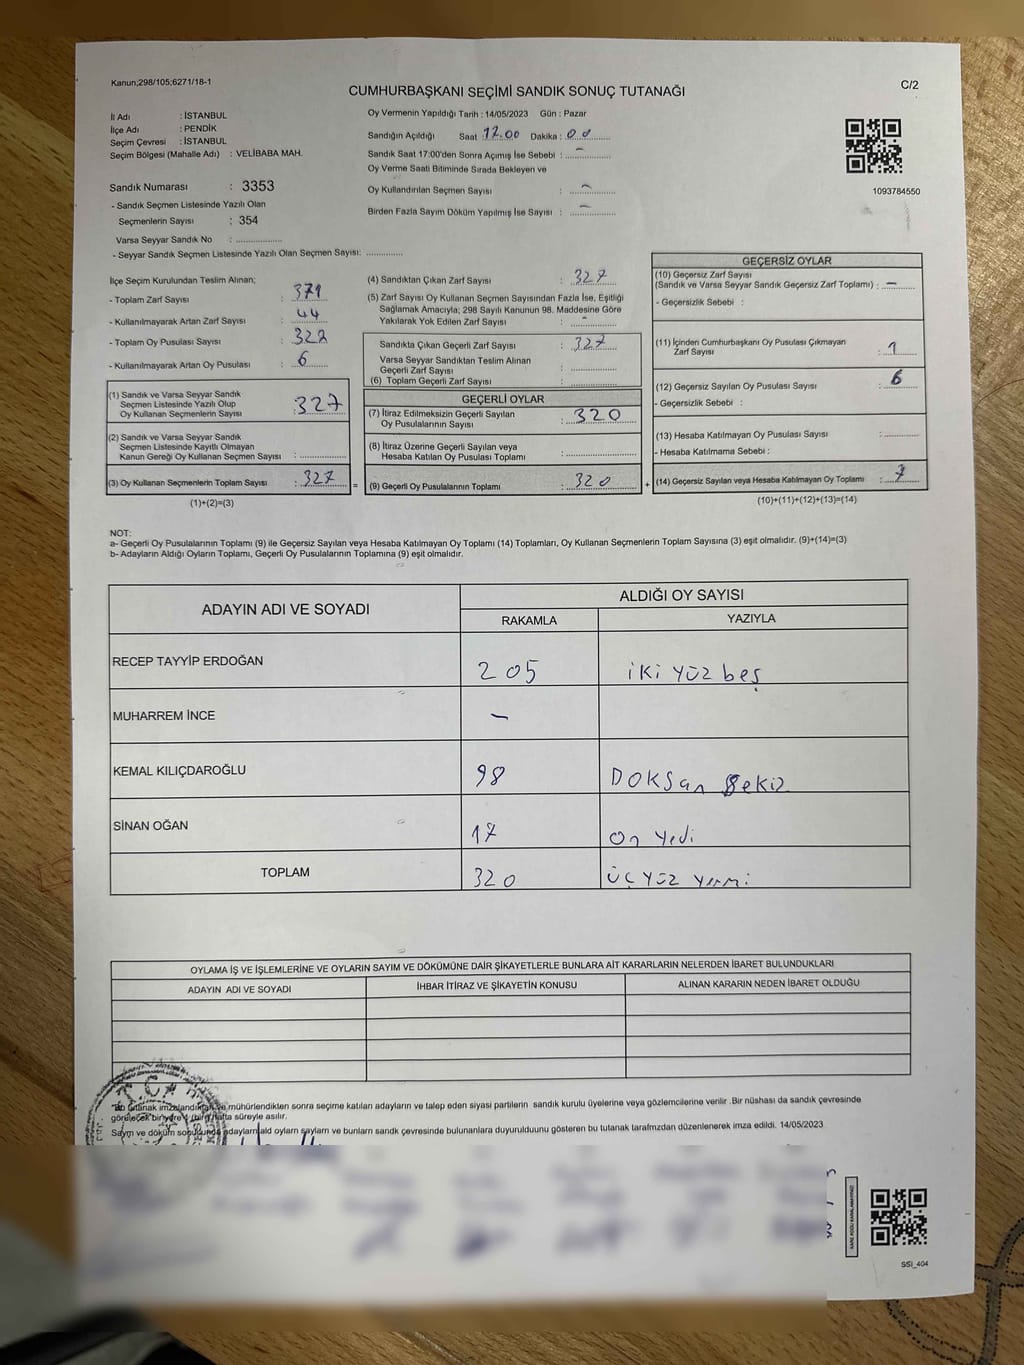 Kanun;298/105;6271/18-1
CUMHURBAŞKANI SEÇİMİ SANDIK SONUÇ TUTANAĞI
C/2
İl Adı : İSTANBUL
İlçe Adı : PENDİK
Seçim Çevresi : İSTANBUL
Seçim Bölgesi (Mahalle Adı) : VELİBABA MAH.
Oy Vermenin Yapıldığı Tarih : 14/05/2023 Gün : Pazar
Sandığın Açıldığı Saat 17.00 Dakika : 00
Sandık Saat 17:00'den Sonra Açımış İse Sebebi : –
Oy Verme Saati Bitiminde Sırada Bekleyen ve
Oy Kullandırılan Seçmen Sayısı : –
Birden Fazla Sayım Döküm Yapılmış İse Sayısı : –
1093784550
Sandık Numarası : 3353
- Sandık Seçmen Listesinde Yazılı Olan
Seçmenlerin Sayısı : 354
Varsa Seyyar Sandık No : ................
- Seyyar Sandık Seçmen Listesinde Yazılı Olan Seçmen Sayısı: .............
İlçe Seçim Kurulundan Teslim Alınan;
- Toplam Zarf Sayısı : 371
- Kullanılmayarak Artan Zarf Sayısı : 44
- Toplam Oy Pusulası Sayısı :
- Kullanılmayarak Artan Oy Pusulası : 6
(1) Sandık ve Varsa Seyyar Sandık
Seçmen Listesinde Yazılı Olup
Oy Kullanan Seçmenlerin Sayısı : 327
(2) Sandık ve Varsa Seyyar Sandık
Seçmen Listesinde Kayıtlı Olmayan
Kanun Gereği Oy Kullanan Seçmen Sayısı : ................
(3) Oy Kullanan Seçmenlerin Toplam Sayısı : 327 =
(1)+(2)=(3)
(4) Sandıktan Çıkan Zarf Sayısı : 327
(5) Zarf Sayısı Oy Kullanan Seçmen Sayısından Fazla İse, Eşitliği
Sağlamak Amacıyla; 298 Sayılı Kanunun 98. Maddesine Göre
Yakılarak Yok Edilen Zarf Sayısı : –
Sandıkta Çıkan Geçerli Zarf Sayısı : 327
Varsa Seyyar Sandıktan Teslim Alınan
Geçerli Zarf Sayısı : ................
(6) Toplam Geçerli Zarf Sayısı : ................
GEÇERLİ OYLAR
(7) İtiraz Edilmeksizin Geçerli Sayılan
Oy Pusulalarının Sayısı : 320
(8) İtiraz Üzerine Geçerli Sayılan veya
Hesaba Katılan Oy Pusulası Toplamı : ................
(9) Geçerli Oy Pusulalarının Toplamı : 320 +
GEÇERSİZ OYLAR
(10) Geçersiz Zarf Sayısı
(Sandık ve Varsa Seyyar Sandık Geçersiz Zarf Toplamı) : –
- Geçersizlik Sebebi :
(11) İçinden Cumhurbaşkanı Oy Pusulası Çıkmayan
Zarf Sayısı : 1
(12) Geçersiz Sayılan Oy Pusulası Sayısı : 6
- Geçersizlik Sebebi :
(13) Hesaba Katılmayan Oy Pusulası Sayısı : ............
- Hesaba Katılmama Sebebi :
(14) Geçersiz Sayılan veya Hesaba Katılmayan Oy Toplamı : 7
(10)+(11)+(12)+(13)=(14)
NOT:
a- Geçerli Oy Pusulalarının Toplamı (9) ile Geçersiz Sayılan veya Hesaba Katılmayan Oy Toplamı (14) Toplamları, Oy Kullanan Seçmenlerin Toplam Sayısına (3) eşit olmalıdır. (9)+(14)=(3)
b- Adayların Aldığı Oyların Toplamı, Geçerli Oy Pusulalarının Toplamına (9) eşit olmalıdır.
ADAYIN ADI VE SOYADI
ALDIĞI OY SAYISI
RAKAMLA YAZIYLA
RECEP TAYYİP ERDOĞAN 205 iki yüz beş
MUHARREM İNCE –
KEMAL KILIÇDAROĞLU 98 DOKSan Sekiz
SİNAN OĞAN 17 On Yedi
TOPLAM 320 ÜÇ YÜZ Yirmi
OYLAMA İŞ VE İŞLEMLERİNE VE OYLARIN SAYIM VE DÖKÜMÜNE DAİR ŞİKAYETLERLE BUNLARA AİT KARARLARIN NELERDEN İBARET BULUNDUKLARI
ADAYIN ADI VE SOYADI İHBAR İTİRAZ VE ŞİKAYETİN KONUSU ALINAN KARARIN NEDEN İBARET OLDUĞU
T.C.
*Bu tutanak imzalandıktan ve mühürlendikten sonra seçime katılan adayların ve talep eden siyasi partilerin sandık kurulu üyelerine veya gözlemcilerine verilir .Bir nüshası da sandık çevresinde
görülecek bir yere 1 (bir) hafta süreyle asılır.
Sayım ve döküm sonucunda adayların ald oylarn sayların ve bunların sandk çevresinde bulunanlara duyurulduunu gösteren bu tutanak tarafmzdan düzenlenerek imza edildi. 14/05/2023
SSI_404